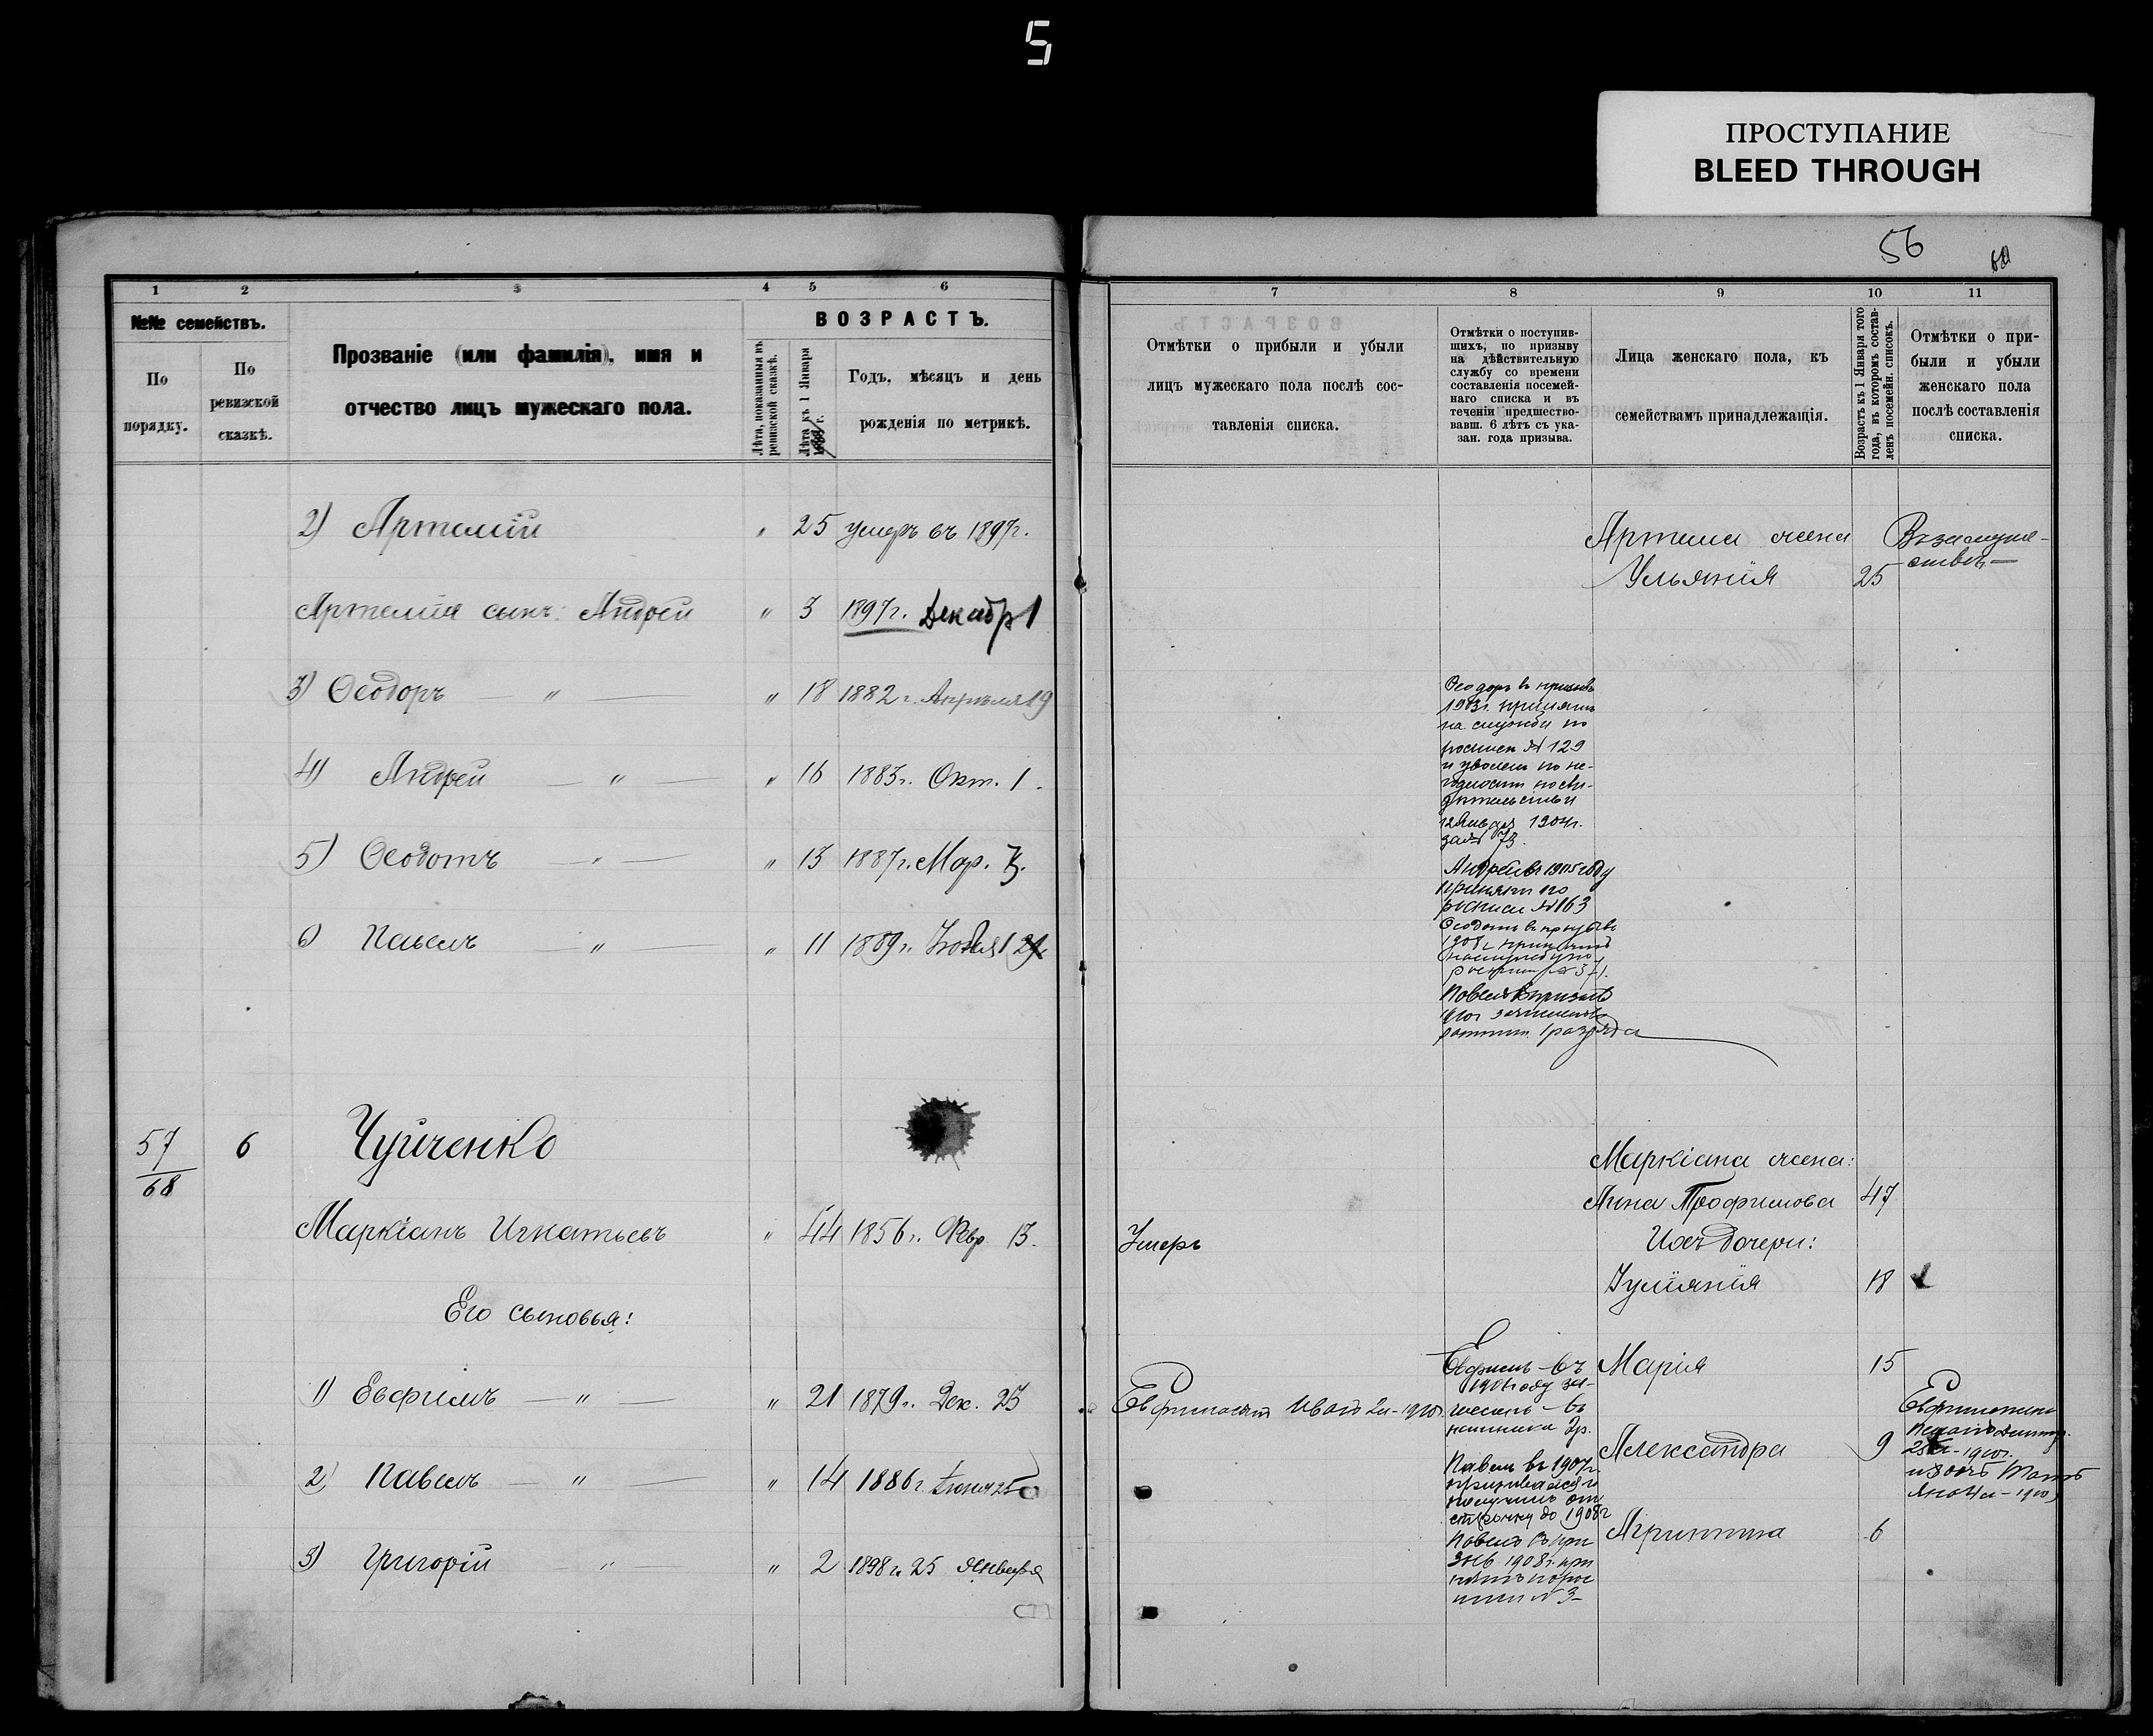 5
ПРОСТУПАНИЕ
BLEED THROUGH
56
1 2 3 4 5 6
№№ семействъ.
По порядку.
По ревизской сказкѣ.
Прозваніе (или фамилія), имя и
отчество лицъ мужескаго пола.
ВОЗРАСТЪ.
Лѣта, показанныя въ
ревизской сказкѣ.
Лѣта къ 1 Января
г.
Годъ, мѣсяцъ и день
рожденія по метрикѣ.
2) Артемій " 25 умеръ въ 1897г.
Артемія сынъ: Андрей " 3 1897г. Декабр 1
3) Ѳеодоръ — " — " 18 1882 г. Апрѣля 19
4) Андрей — " — " 16 1883г. Окт. 1.
5) Ѳеодотъ — " — " 13 1887г. Мар. 3.
6) Павелъ — " — " 11 1889г.
57/68 6 Чуйченко
Маркіанъ Игнатьевъ " 44 1856г. Февр 13.
Его сыновья:
1) Евфимъ — " — " 21 1879г. Дек. 25
2) Павелъ — " — " 14 1886г Іюня 25
3) Григорій — " — " 2 1898г. 25 Января
7 8 9 10 11
Отмѣтки о прибыли и убыли
лицъ мужескаго пола послѣ сос-
тавленія списка.
Отмѣтки о поступив-
шихъ, по призыву
на дѣйствительную
службу со времени
составленія посемей-
наго списка и въ
теченіи предшество-
вавш. 6 лѣтъ съ ука-
зан. года призыва.
Лица женскаго пола, къ
семействамъ принадлежащія.
Возрастъ къ 1 Января того
года, въ которомъ состав-
ленъ посемейн. списокъ.
Отмѣтки о при-
были и убыли
женскаго пола
послѣ составленія
списка.
Артема жена
Ульянія 25
Взамуже-
ствѣ —
Ѳеодоръ въ призывѣ
1903г. принятъ
на службу по
росписи № 129
и уволенъ по не-
годности по сви-
дѣтельству
12 Января 1904г.
за № 73.
Андрей въ 1905 году
принятъ по
росписи № 163
Ѳеодотъ въ призывѣ
1908г принятъ
росписи № 371.
Павелъ въ призывѣ
1910г зачисленъ
ратник. 1 разряда
Маркіана жена:
Анна Трофимова 47
Ихъ дочери:
Іуліянія 18
Марія 15
Александра 9
Агрипина 6
Умеръ
Иванъ
Евфимъ — въ
Павелъ въ 1907г.
призывался и
получилъ от-
строчку до 1908г
Павелъ въ при-
зывъ 1908г. при-
нятъ по рос-
писи № 3-